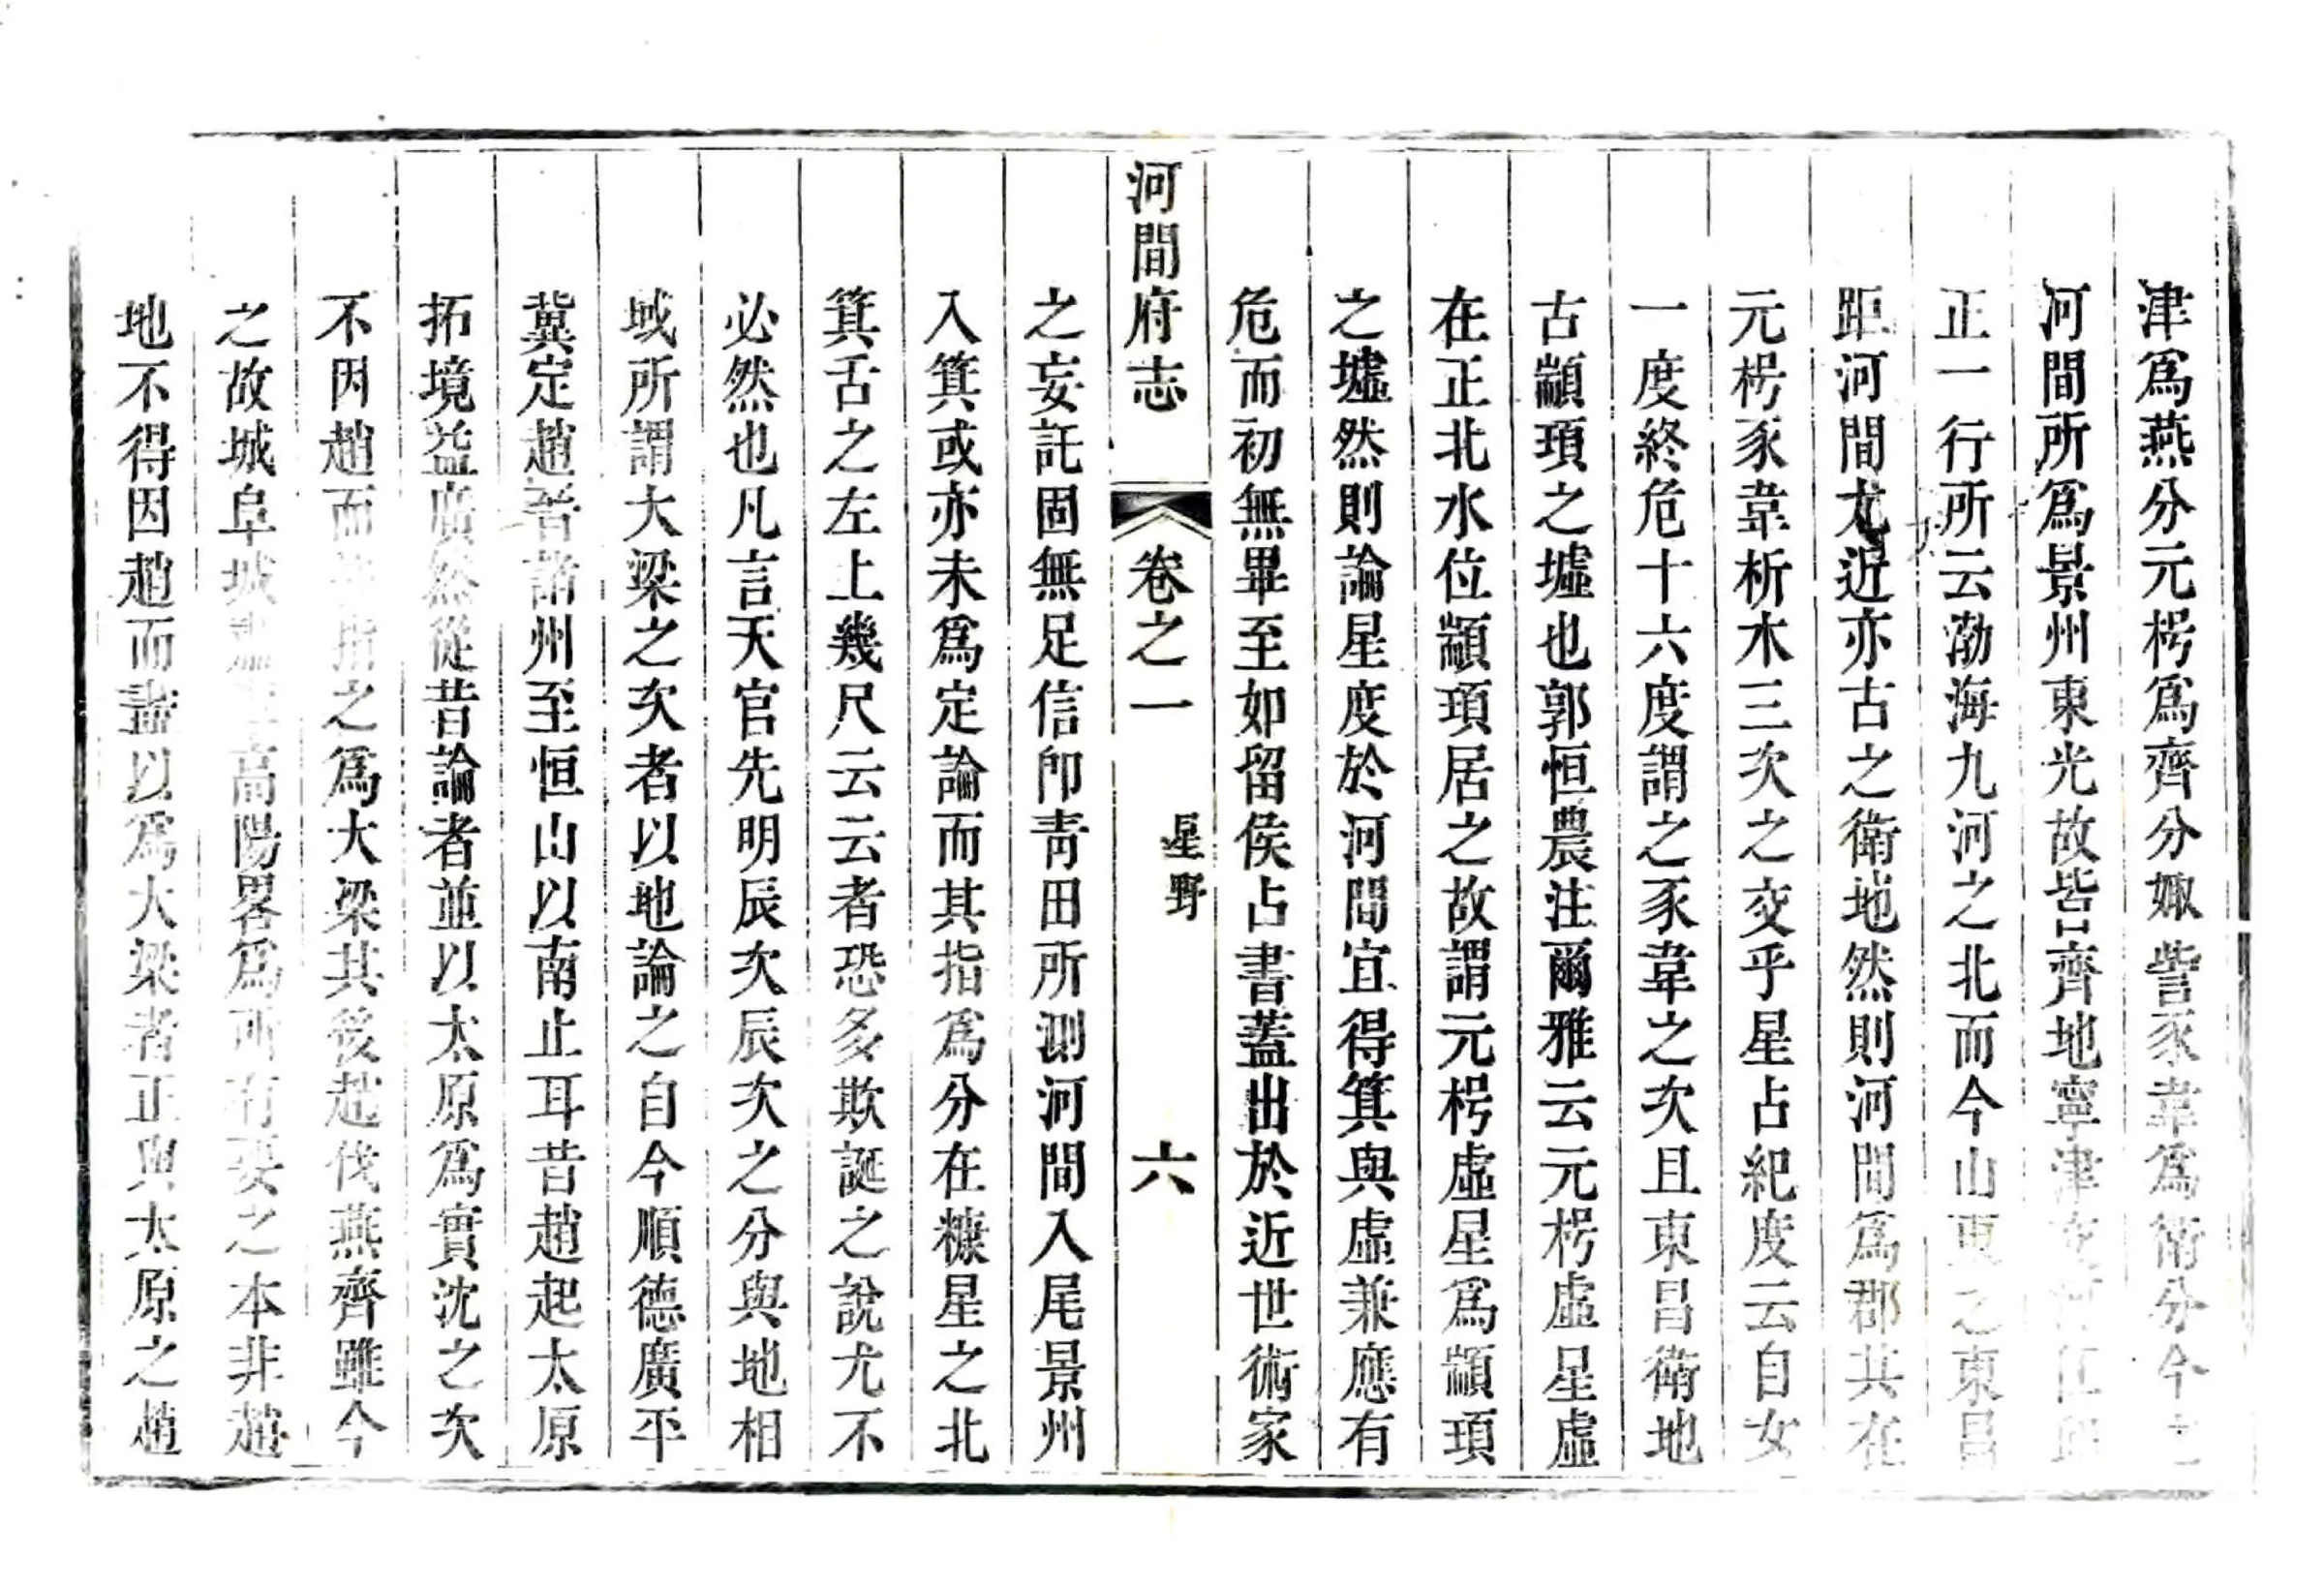 津爲燕分元枵爲齊分娵訾豕韋爲衛分今之
河間所爲景州東光故皆齊地寧津
正一行所云渤海九河之北而今山東之東昌
距河間尤近亦古之衛地然則河間爲郡其在
元枵豕韋析木三次之交乎星占紀度云自女
一度終危十六度謂之豕韋之次且東昌衛地
古顓頊之墟也郭恒農注爾雅云元枵虛星虛
在正北水位顓頊居之故謂元枵虛星爲顓頊
之墟然則論星度於河間宜得箕與虛兼應有
危而初無畢至如留侯占書蓋出於近世術家
河間府志 卷之一 星野 六
之妄託固無足信卽青田所測河間入尾景州
入箕或亦未爲定論而其指爲分在糠星之北
箕舌之左上幾尺云云者恐多欺誕之說尤不
必然也凡言天官先明辰次辰次之分與地相
域所謂大梁之次者以地論之自今順德廣平
冀定趙晉諸州至恒山以南止耳昔趙起太原
拓境益廣然從昔論者並以太原爲實沈之次
不因趙而指之爲大梁其後趙伐燕齊雖今
之故城阜城高陽畧爲所有要之本非趙
地不得因趙而盡以爲大梁者正與太原之趙